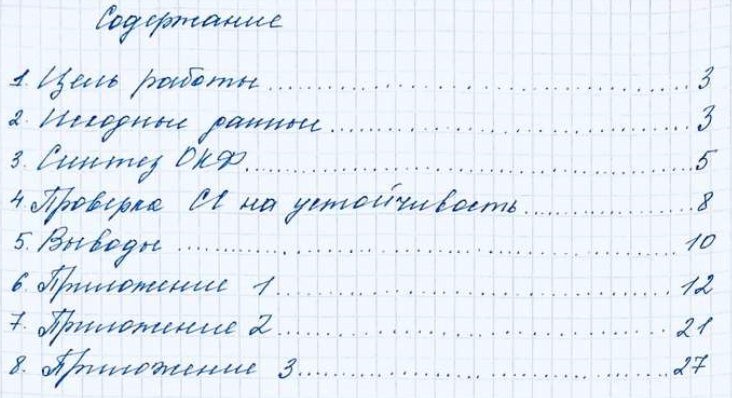 Содержание
1. Цель работы........................3
2. Исходные данные........................3
3. Синтез ОКФ........................5
4 Проверка СЛ на устойчивость........................8
5. Выводы........................10
6. Приложение 1........................12
7. Приложение 2........................21
8. Приложение 3........................27